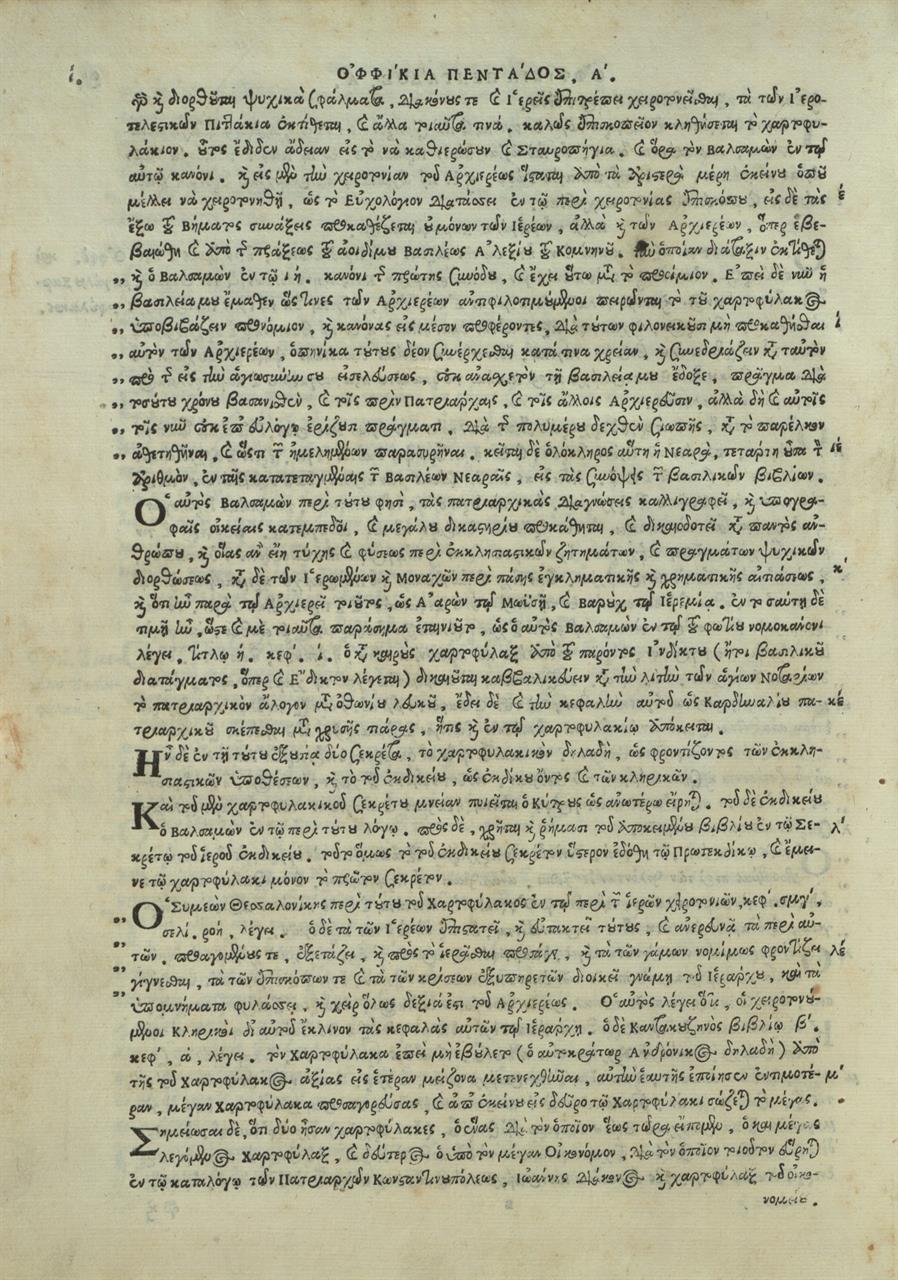 ι. ΟΦΦΙΚΙΑ ΠΕΝΤΑΔΟΣ, Α.
καὶ διορθοῦται ψυχικὰ σφάλματα, Διακόνους τε καὶ Ἱερεῖς ἐπιτρέπει χειροτονεῖσθαι, τὰ τῶν Ἱερο-
τελεστικῶν Πιττάκια ἐκτίθεται, καὶ ἄλλα τοιαῦτα τινά. καλῶς ἐπισκοπεῖον κληθήσεται τὸ χαρτοφυ-
λάκιον. οὗτος ἔδιδεν ἄδειαν εἰς τὸ νὰ καθιερώσουν καὶ Σταυροπήγια. καὶ ὅρα τὸν Βαλσαμὼν ἐν τῷ
αὐτῷ κανόνι. καὶ εἰς μὲν τὴν χειροτονίαν τοῦ Ἀρχιερέως ἵσταται ἀπὸ τὰ ἀριστερὰ μέρη ἐκείνου ὁποῦ
μέλλει νὰ χειροτονηθῇ, ὡς τὸ Εὐχολόγιον διατάσσει ἐν τῷ περὶ χειροτονίας ἐπισκόπου, εἰς δὲ τὰς ε
ἔξω τοῦ Βήματος συνάξεις προκαθέζεται οὐ μόνον τῶν Ἱερέων, ἀλλὰ καὶ τῶν Ἀρχιερέων, ὅπερ ἐβε-
βαιώθη καὶ ἀπὸ τῆς πράξεως τοῦ ἀοιδίμου Βασιλέως Ἀλεξίου τοῦ Κομνηνοῦ. τὴν ὁποίαν διάταξιν ἐκτίθεται
„ καὶ ὁ Βαλσαμὼν ἐν τῷ ιη. κανόνι τῆς πρώτης Συνόδου, καὶ ἔχει οὕτω μετὰ τὸ προοίμιον. Ἐπεὶ δὲ νῦν ἡ
„ βασιλεία μου ἔμαθεν ὥς τινες τῶν Ἀρχιερέων ἀντιφιλοτιμούμενοι πειρῶνται τὸ τοῦ χαρτοφύλακος
„ ὑποβιβάζειν προνόμιον, καὶ κανόνας εἰς μέσον προφέροντες, διὰ τούτων φιλονεικοῦσι μὴ προκαθῆσθαι ι
„ αὐτὸν τῶν Ἀρχιερέων, ὁπηνίκα τούτους δέον συνέρχεσθαι κατά τινα χρείαν, καὶ συνεδριάζειν κατὰ ταὐτὸν
„ πρὸ τῆς εἰς τὴν ἁγιωσύνην σου εἰσελεύσεως, οὐκ ἀνασχετὸν τῇ βασιλείᾳ μου ἔδοξε, πρᾶγμα διὰ
„ τοσούτου χρόνου βασανισθὲν, καὶ τοῖς πρὶν Πατριάρχαις, καὶ τοῖς ἄλλοις Ἀρχιερεῦσιν, ἀλλὰ δὴ καὶ αὐτοῖς
„ τοῖς νῦν οὐκ ἐπ' εὐλόγῳ ἐρίζουσι πράγματι, διὰ τῆς πολυμέρου δεχθὲν σιωπῆς, κατὰ τὸ παρέλκον
„ ἀθετηθῆναι, καὶ ὥς τι τῶν ἠμελημένων παρασυρῆναι. κεῖται δὲ ὁλόκληρος αὕτη ἡ Νεαρὰ, τετάρτη οὖσα τὸν ιε
ἀριθμὸν, ἐν ταῖς κατατεταγμέναις τῶν Βασιλέων Νεαραῖς, εἰς τὰς συνόψεις τῶν βασιλικῶν βιβλίων.
Ὁ αὐτὸς Βαλσαμὼν περὶ τούτου φησὶ, τὰς πατριαρχικὰς διαγνώσεις καλλιγραφεῖ, καὶ ὑπογρα-
φαῖς οἰκείαις κατεμπεδοῖ, καὶ μεγάλου δικαστηρίου προκάθηται, καὶ δικαιοδοτεῖ κατὰ παντὸς ἀν-
θρώπου, καὶ οἵας ἂν εἴη τύχης καὶ φύσεως περὶ ἐκκλησιαστικῶν ζητημάτων, καὶ πραγμάτων ψυχικῶν
διορθώσεως, κατὰ δὲ τῶν Ἱερωμένων καὶ Μοναχῶν περὶ πάσης ἐγκληματικῆς καὶ χρηματικῆς αἰτιάσεως, κ
καὶ ὅτι ἦν παρὰ τῷ Ἀρχιερεῖ τοιοῦτος, ὡς Ἀαρὼν τῷ Μωϋσῇ, καὶ Βαροὺχ τῷ Ἱερεμίᾳ. ἐν τοσαύτῃ δὲ
τιμῇ ἦν, ὥστε καὶ μὲ τοιαῦτα παράσημα ἐτιμεῖτο, ὡς ὁ αὐτὸς Βαλσαμὼν ἐν τῷ τοῦ φωτίου νομοκανόνι
λέγει, τίτλῳ η. κεφ. ι. ὁ κατὰ καιροὺς χαρτοφύλαξ ἀπὸ τοῦ παρόντος Ἰνδίκτου (ἤτοι βασιλικοῦ
διατάγματος, ὅπερ καὶ Ἔδικτον λέγεται) δικαιοῦται καβαλικεύειν κατὰ τὴν λιτὴν τῶν ἁγίων Νοταρίων
τὸ πατριαρχικὸν ἄλογον μετὰ ὀθωνίου λευκοῦ, ἔδει δὲ καὶ τὴν κεφαλὴν αὐτοῦ ὡς Καρδιναλίου πα- κε
τριαρχικοῦ σκέπεσθαι μετὰ χρυσῆς τιάρας, ἥτις καὶ ἐν τῷ χαρτοφυλακίῳ ἀπόκειται.
Ἦν δὲ ἐν τῇ τούτου ἐξουσίᾳ δύο Σεκρέτα, τὸ χαρτοφυλακικὸν δηλαδὴ, ὡς φροντίζοντος τῶν ἐκκλη-
σιαστικῶν ὑποθέσεων, καὶ τὸ τοῦ ἐκδικείου, ὡς ἐκδίκου ὄντος καὶ τῶν κληρικῶν.
Καὶ τοῦ μὲν χαρτοφυλακικοῦ Σεκρέτου μνείαν ποιεῖται ὁ Κίτρους ὡς ἀνωτέρω εἴρηται. τοῦ δὲ ἐκδικείου
ὁ Βαλσαμὼν ἐν τῷ περὶ τούτου λόγῳ. πρὸς δὲ, χρῆται καὶ ῥήμασι τοῦ ἀποκειμένου βιβλίου ἐν τῷ Σε- λ
κρέτῳ τοῦ ἱεροῦ ἐκδικείου. τοῦτο ὅμως τὸ τοῦ ἐκδικείου Σεκρέτον ὕστερον ἐδόθη τῷ Πρωτεκδίκῳ, καὶ ἔμει-
νε τῷ χαρτοφύλακι μόνον τὸ πρῶτον Σεκρέτον.
„ Ὁ Συμεὼν Θεσσαλονίκης περὶ τούτου τοῦ Χαρτοφύλακος ἐν τῷ περὶ τῶν ἱερῶν χειροτονιῶν, κεφ. σμγ,
„ σελ. ροη, λέγει. ὁ δὲ τὰ τῶν Ἱερέων ἐπιστατεῖ, καὶ εὐτακτεῖ τούτους, καὶ ἀνερευνᾷ τὰ περὶ αὐ-
„ τῶν. προαγομένους τε, ἐξετάζει, καὶ πρὸς τὸ ἱερᾶσθαι προπάγει, καὶ τὰ τῶν γάμων νομίμως φροντίζει λε
„ γίγνεσθαι, τὰ τῶν ἐπισκόπων τε καὶ τὰ τῶν κρίσεων ἐξυπηρετῶν διοικεῖ γνώμῃ τοῦ Ἱεράρχου, καὶ τὰ
„ ὑπομνήματα φυλάσσει, καὶ χεὶρ ὅλως δεξιά ἐστι τοῦ Ἀρχιερέως. Ὁ αὐτὸς λέγει ὅτι, οἱ χειροτονού-
μενοι Κληρικοὶ δι' αὐτοῦ ἔκλινον τὰς κεφαλὰς αὐτῶν τῷ Ἱεράρχῃ. ὁ δὲ Καντακουζηνὸς βιβλίῳ β.
κεφ, α, λέγει. τὸν Χαρτοφύλακα ἐπεὶ μὴ ἐβούλετο (ὁ αὐτοκράτωρ Ἀνδρόνικος δηλαδὴ) ἀπὸ
τῆς τοῦ Χαρτοφύλακος ἀξίας εἰς ἑτέραν μείζονα μετενεχθῆναι, αὐτὴν ἑαυτῆς ἐποίησεν ἐντιμοτέ- μ
ραν, μέγαν Χαρτοφύλακα προσαγορεύσας, καὶ ἀπ' ἐκείνου εἰς δεῦρο τῷ Χαρτοφύλακι σώζεται τὸ μέγας.
Σημείωσαι δὲ, ὅτι δύο ἦσαν χαρτοφύλακες, ὁ ἕνας διὰ τὸν ὁποῖον ἕως τώρα εἴπομεν, ὁ καὶ μέγας
λεγόμενος Χαρτοφύλαξ, καὶ δεύτερος ὁ ὑπὸ τὸν μέγαν Οἰκονόμον, διὰ τὸν ὁποῖον τοιοῦτον εὕρηται
ἐν τῷ καταλόγῳ τῶν Πατριαρχῶν Κωνσταντινουπόλεως, Ἰωάννης Διάκονος καὶ χαρτοφύλαξ τοῦ οἰκο-
νομείου.